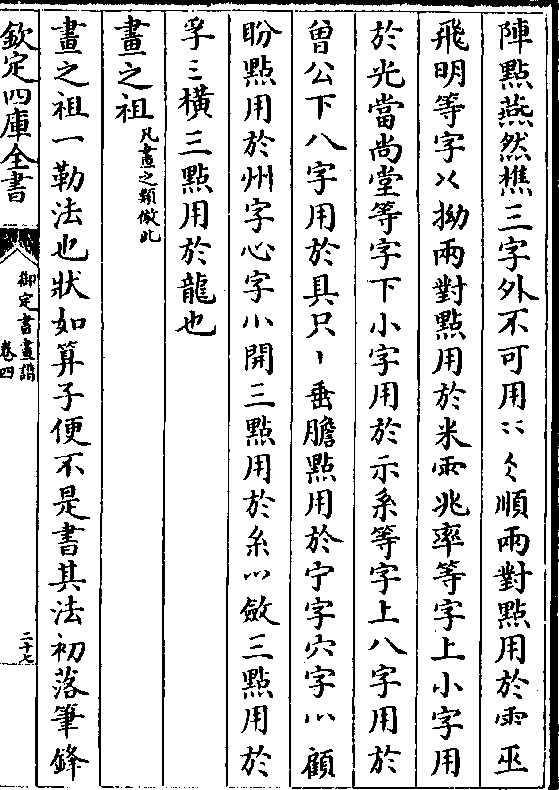 陣點燕然樵三字外不可用⺀⺀順兩對點用於雨巫
飛明等字拗兩對點用於米雨兆率等字上小字用
於光當尚堂等字下小字用於示系等字上八字用於
曾公下八字用於具只丶垂膽點用於宁字穴字顧
盼點用於州字心字小開三點用於糸䒑斂三點用於
孚三橫三點用於龍也
畫之祖凡畫之類倣此
畫之祖一勒法也狀如算子便不是書其法初落筆鋒
欽定四庫全書
御定書畫譜
卷四
二十七